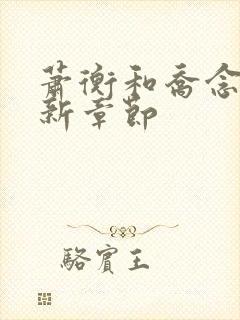 萧衡和乔念
新章节
骆宾王